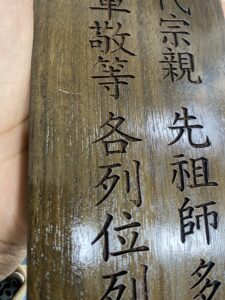 代宗親 先祖師多
敬等 各列位列